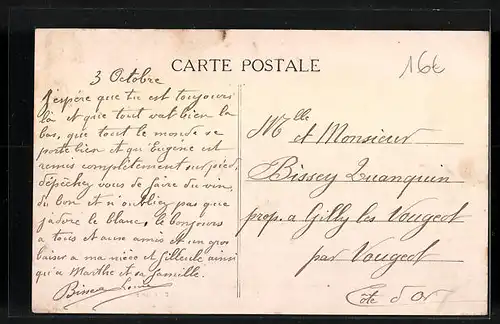 CARTE POSTALE
16€
3 Octobre
J'espére que tu est toujours
là et que tout vat bien la
bas, que tout le monde se
porte bien et qu'Eugène est
remis complètement sur pied,
dépêchez vous de faire du vin,
du bon et n'oubliez pas que
j'adore le blanc, le bonjours
a tous et aux amis et un gros
baiser a ma nièce et filleule ainsi
qu'a Marthe et sa famille.
Bissey Louis
Mlle et Monsieur
Bissey Quanquin
prop. a Gilly les Vougeot
par Vougeot
Côte d'Or